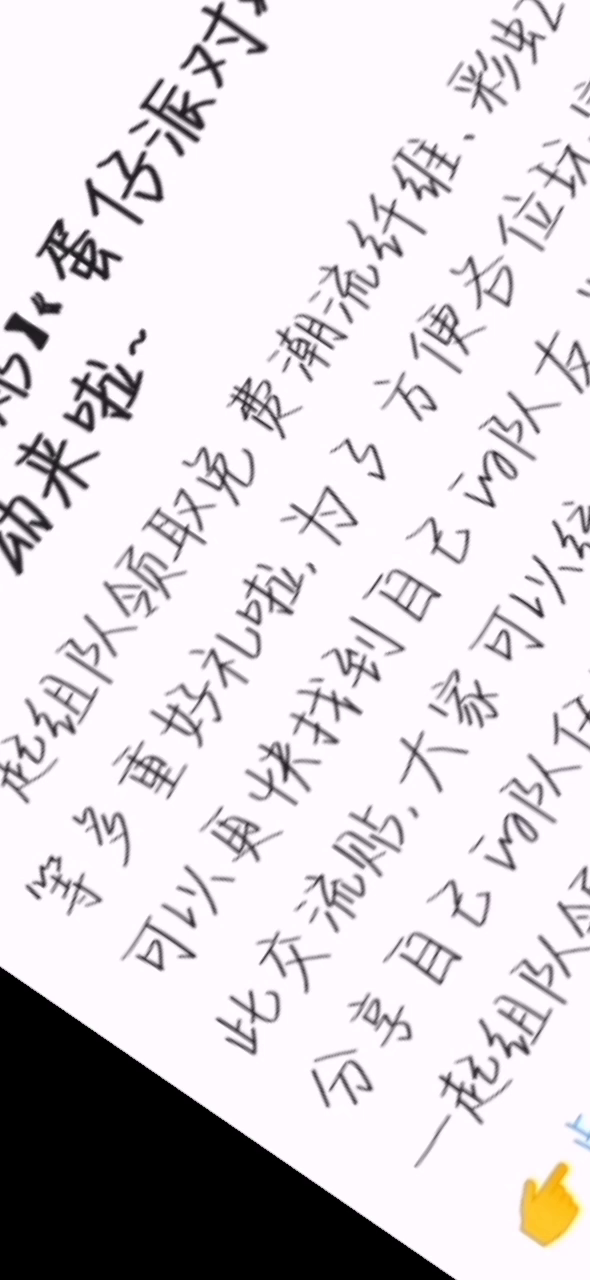 】《蛋仔派对
来啦~
起组队领取免费潮流纤维、彩虹
等多重好礼啦，为了方便各位玩
可以更快找到自己的队友
此交流贴，大家可以给
分享自己的队伍
一起组队领